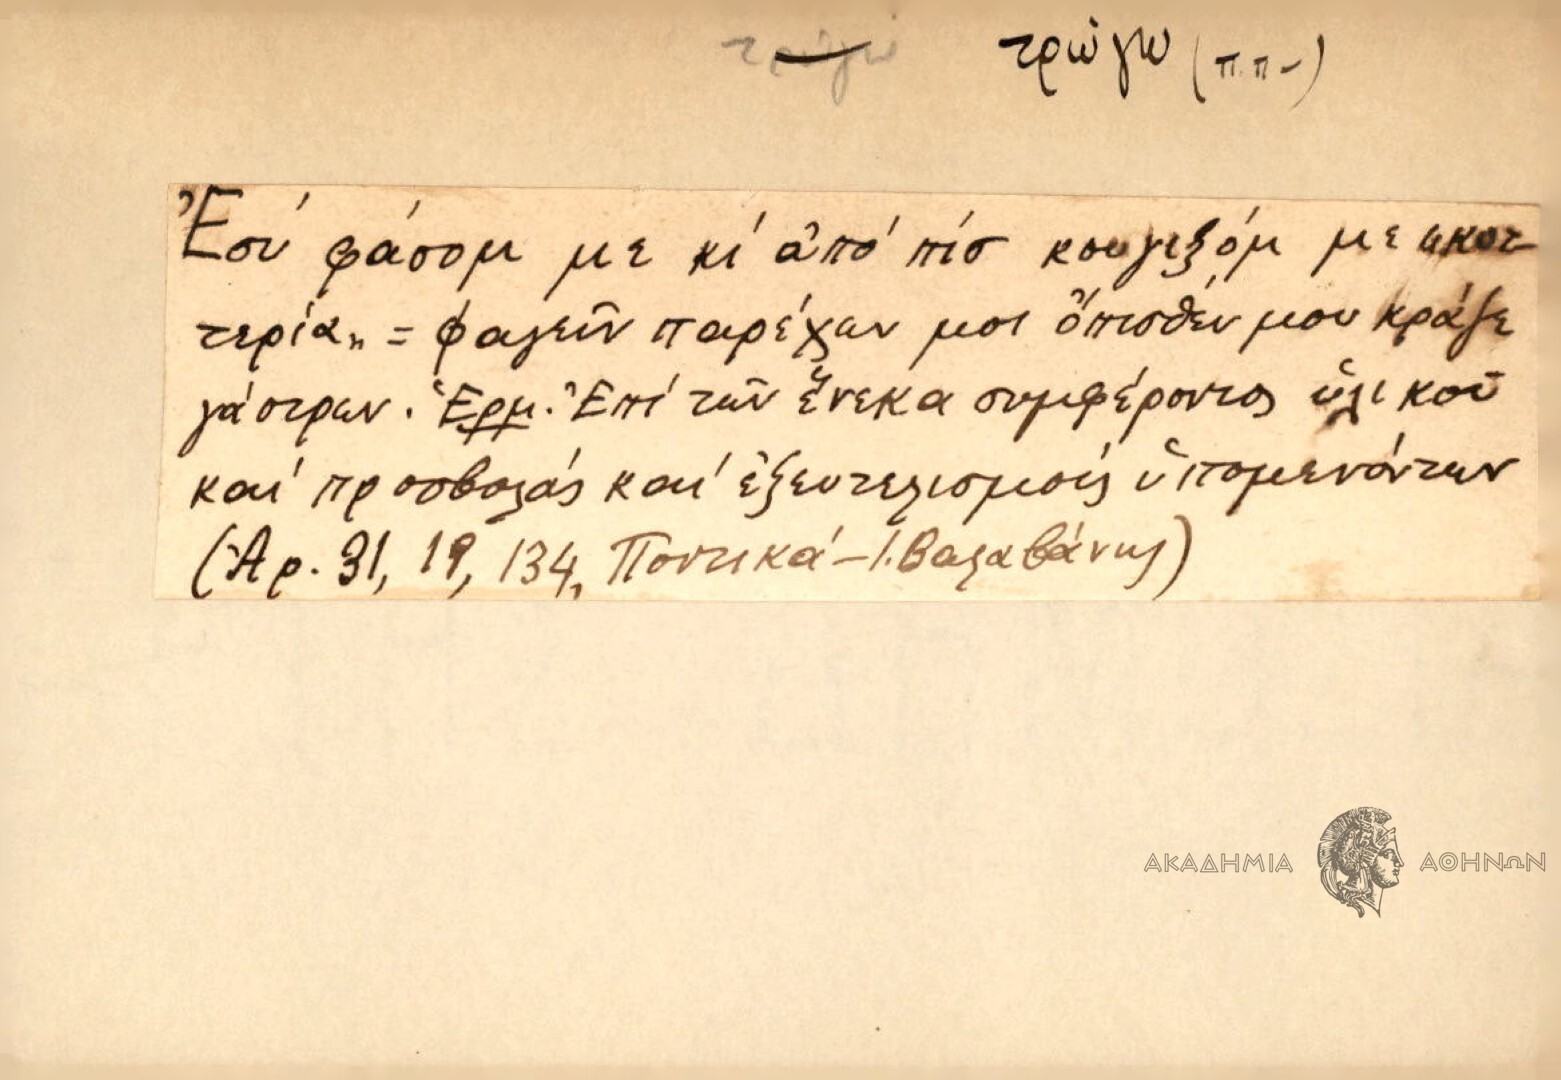 τρώγω τρώγω (π.π-)
Ἐσύ φάσομ με κι' ἀπό πίσ κουλιξόμ με "κοτ-
τερία" = φαγεῖν παρέχων μοι ὄπισθέν μου κράζε
γάστρων. Ἑρμ. Ἐπί τῶν ἕνεκα συμφέροντος ὑλικοῦ
καί προσβολάς καί ἐξευτελισμούς ὑπομενόντων
(Ἀρ. 31, 19, 134, Ποντικά - Ι. Βαλαβάνης)
ΑΚΑΔΗΜΙΑ ΑΘΗΝΩΝ